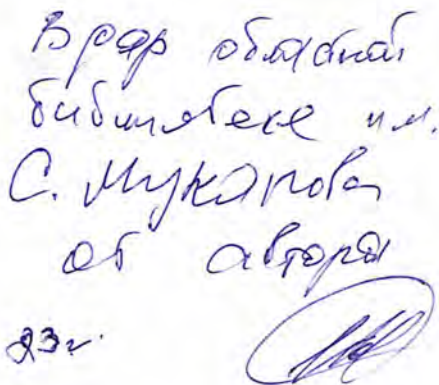 В дар областной
библиотеке им.
С. Муканова
от автора
23г.